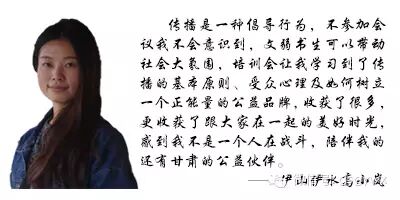 传播是一种倡导行为，不参加会
议我不会意识到，文弱书生可以带动
社会大氛围，培训会让我学习到了传
播的基本原则、受众心理及如何树立
一个正能量的公益品牌，收获了很多，
更收获了跟大家在一起的美好时光，
感到我不是一个人在战斗，陪伴我的
还有甘肃的公益伙伴。
——伊山伊水高小岚